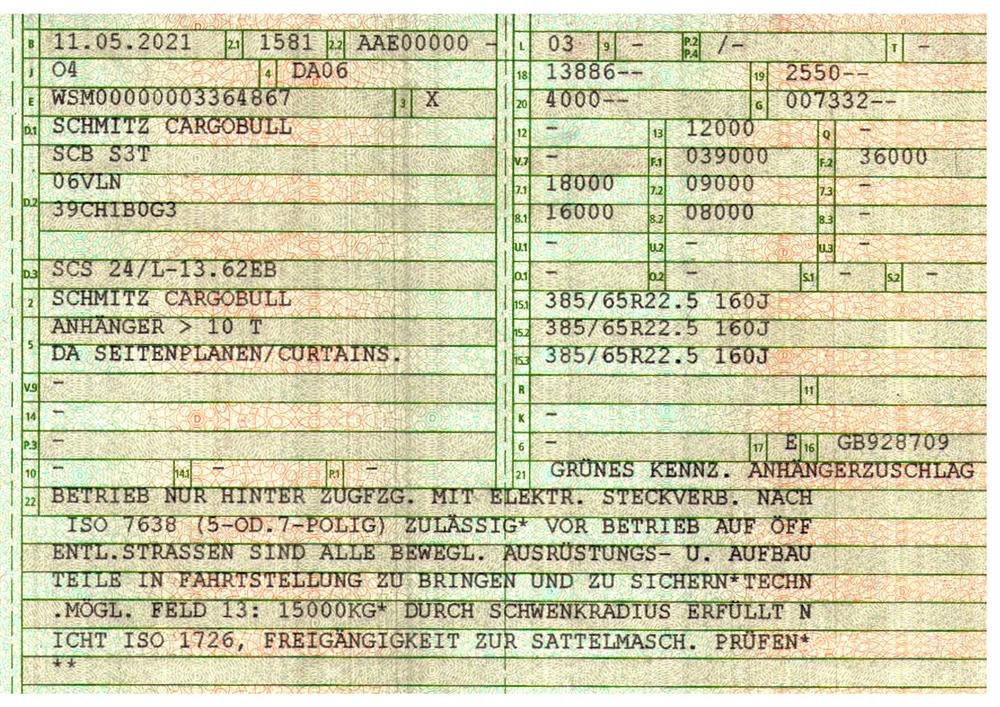 B 11.05.2021 2.1 1581 2.2 AAE00000 -
J 04 4 DA06
E WSM00000003364867 3 X
D.1 SCHMITZ CARGOBULL
SCB S3T
D.2 06VLN
39CH1B0G3
D.3 SCS 24/L-13.62EB
2 SCHMITZ CARGOBULL
5 ANHÄNGER > 10 T
DA SEITENPLANEN/CURTAINS.
V.9 -
14 -
P.3 -
10 - 14.1 - P.1 -
L 03 9 - P.2 P.4 /- T -
18 13886-- 19 2550--
20 4000-- G 007332--
12 - 13 12000 Q -
V.7 - F.1 039000 F.2 36000
7.1 18000 7.2 09000 7.3 -
8.1 16000 8.2 08000 8.3 -
U.1 - U.2 - U.3 -
O.1 - O.2 - S.1 - S.2 -
15.1 385/65R22.5 160J
15.2 385/65R22.5 160J
15.3 385/65R22.5 160J
R 11
K -
6 - 17 E 16 GB928709
21 GRÜNES KENNZ. ANHÄNGERZUSCHLAG
22 BETRIEB NUR HINTER ZUGFZG. MIT ELEKTR. STECKVERB. NACH
ISO 7638 (5-OD.7-POLIG) ZULÄSSIG* VOR BETRIEB AUF ÖFF
ENTL.STRASSEN SIND ALLE BEWEGL. AUSRÜSTUNGS- U. AUFBAU
TEILE IN FAHRTSTELLUNG ZU BRINGEN UND ZU SICHERN*TECHN
.MÖGL. FELD 13: 15000KG* DURCH SCHWENKRADIUS ERFÜLLT N
ICHT ISO 1726, FREIGÄNGIGKEIT ZUR SATTELMASCH. PRÜFEN*
**